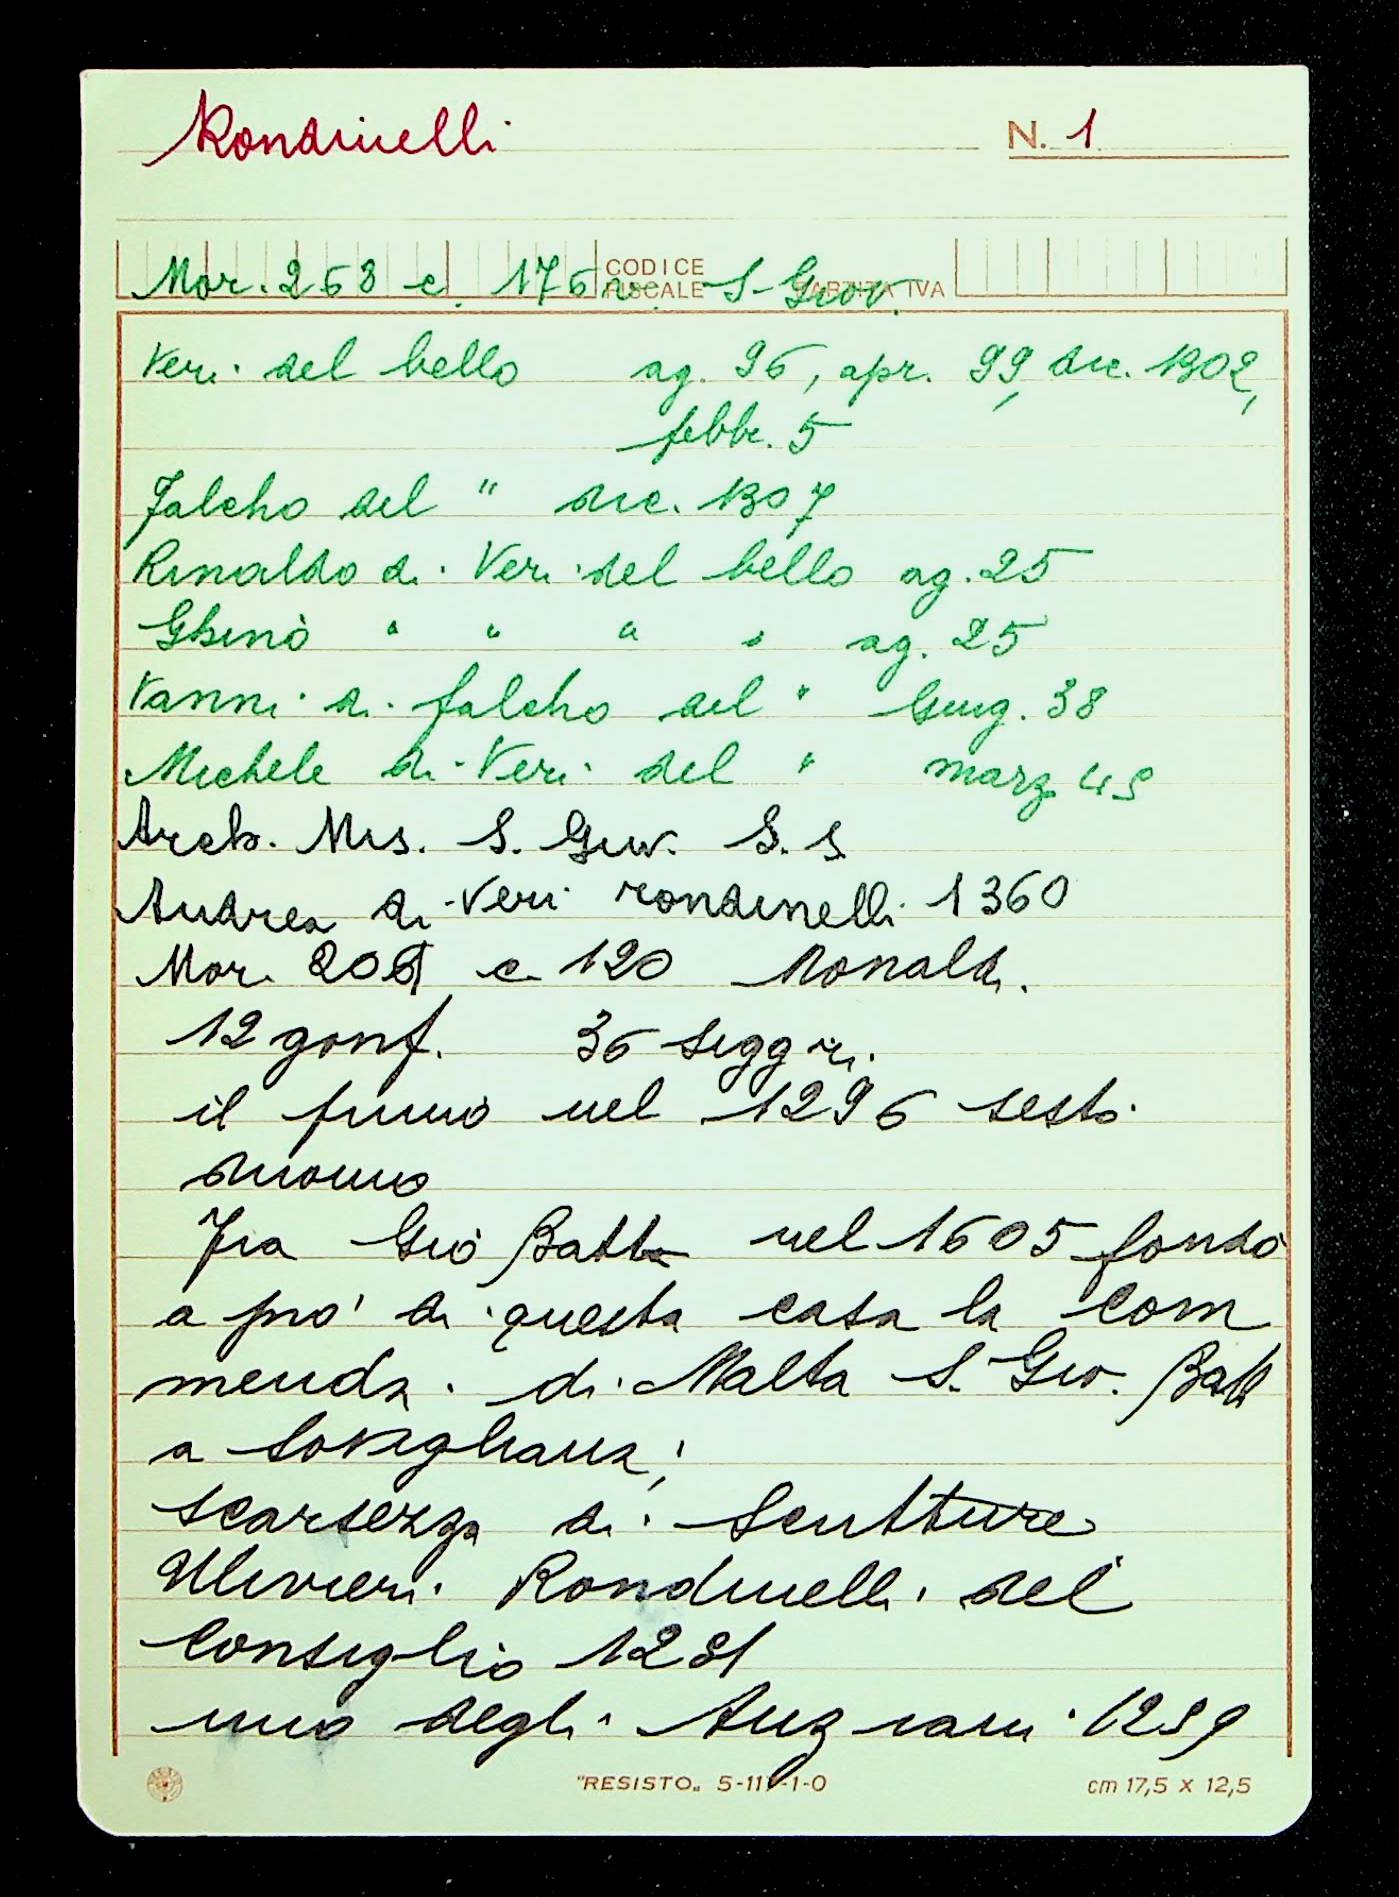 Rondinelli N. 1
CODICE
FISCALE PARTITA IVA
Mor. 268 c. 176 v. S. Giov.
Veri del bello ag. 96, apr. 99, dic. 1302,
febbr. 5
Falcho del " dic. 1307
Rinaldo di Veri del bello ag. 25
Ghino " " " " ag. 25
Vanni di falcho del " Giug. 38
Michele di Veri del " marz 49
Arch. Mss. S. Giov. S. S.
Andrea di Veri rondinelli 1360
Mor. c 120 Monaldi.
12 gonf. 36 seggi
il primo nel 1296 sesto
duomo
Fra Gio Batta nel 1605 fondò
a pro' di questa casa la Com
menda di Malta S. Gio. Batt
a Sovigliana;
scarsezza di Scritture
Ulivieri Rondinelli del
Consiglio 1281
uno degli Anziani 1259
"RESISTO„ 5-111-1-0 cm 17,5 x 12,5